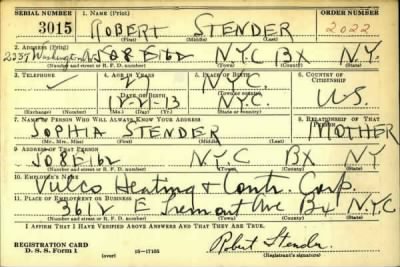 SERIAL NUMBER
1. NAME (Print)
ORDER NUMBER
3015
ROBERT STENDER
2022
(First) (Middle) (Last)
2. ADDRESS (Print)
2337 Washington Av 508 E 162 N.Y.C BX N.Y.
(Number and street or R. F. D. number) (Town) (County) (State)
3. TELEPHONE
4. AGE IN YEARS
5. PLACE OF BIRTH
6. COUNTRY OF CITIZENSHIP
N.Y.C.
(Town or county)
DATE OF BIRTH
12-21-13 N.Y.C. U.S.
(Exchange) (Number) (Mo.) (Day) (Yr.) (State or country)
7. NAME OF PERSON WHO WILL ALWAYS KNOW YOUR ADDRESS
8. RELATIONSHIP OF THAT PERSON
SOPHIA STENDER MOTHER
(Mr., Mrs., Miss) (First) (Middle) (Last)
9. ADDRESS OF THAT PERSON
508 E 162 N.Y.C BX NY
(Number and street or R. F. D. number) (Town) (County) (State)
10. EMPLOYER'S NAME
Vulco Heating & Contr. Corp.
11. PLACE OF EMPLOYMENT OR BUSINESS
3612 E Tremont Ave Bx N.Y.C
(Number and street or R. F. D. number) (Town) (County) (State)
I AFFIRM THAT I HAVE VERIFIED ABOVE ANSWERS AND THAT THEY ARE TRUE.
REGISTRATION CARD
D. S. S. Form 1 (over) 16-17105
Robert Stender
(Registrant's signature)